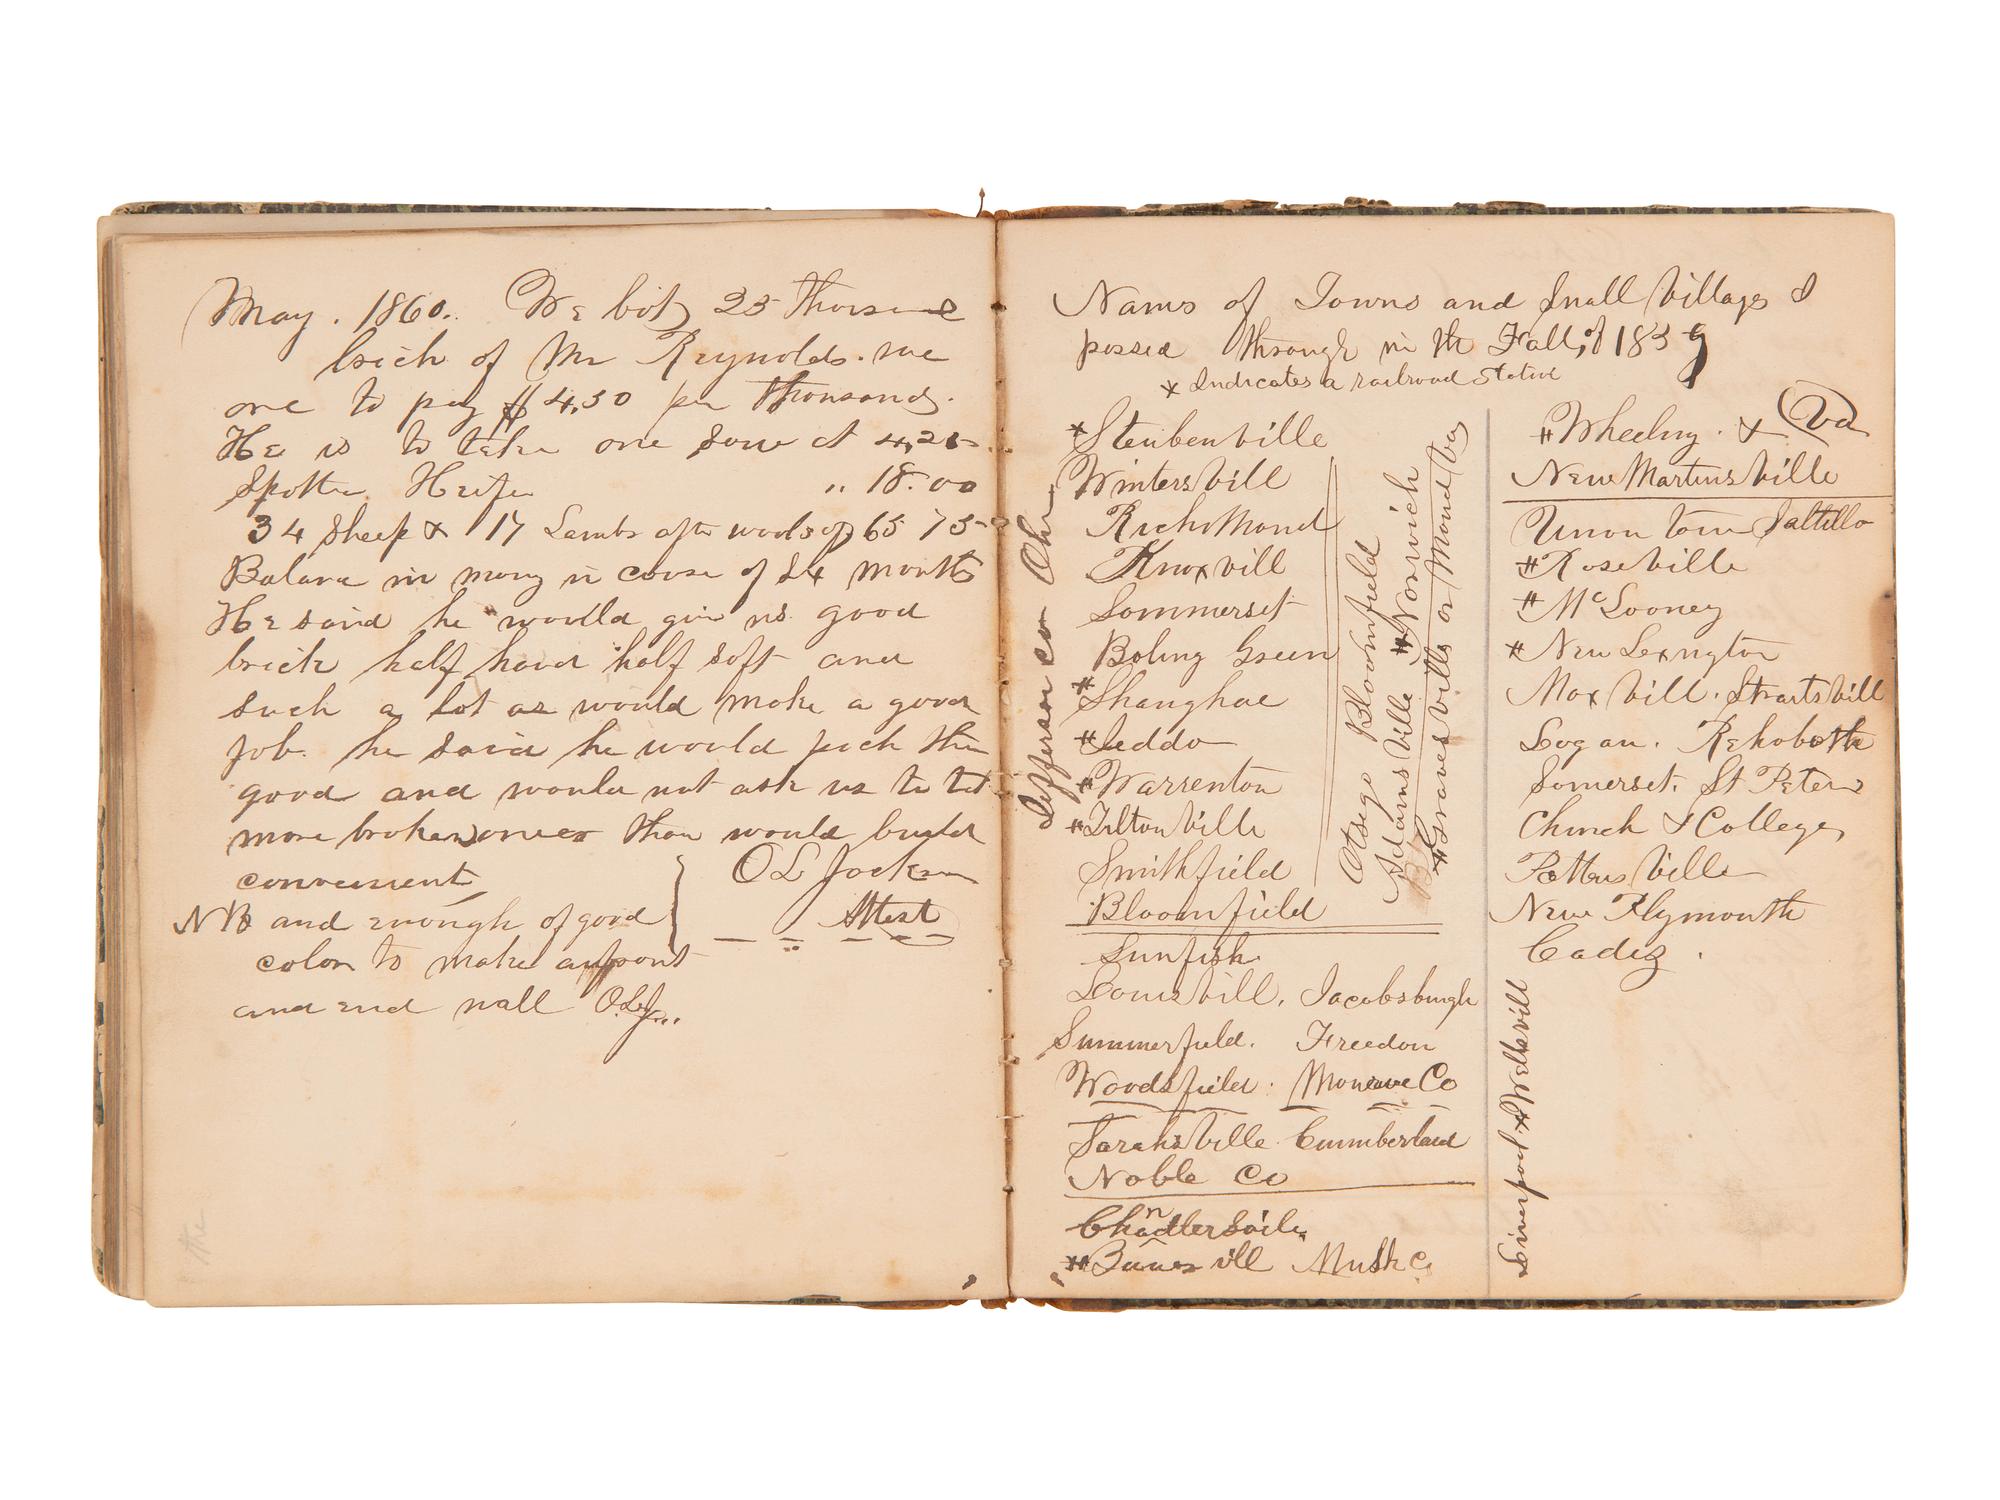 May. 1860. We bot 25 thousand
brick of Mr Reynolds. we
are to pay $4,50 per thousand.
He is to take one sow at 4,25
Spotten Heifer „ 18.00
34 Sheep & 17 Lambs after wool is off 65 75
Balance in mony in course of 24 months
He said he would give us good
brick half hard half soft and
such a lot as would make a good
job. he said he would pick them
good and would not ask us to tak
more broken ones than would build
convenient
NB and enough of good
color to make a front
and end wall OLJ..
OL Jackson
Attest
Names of Towns and Small Villages I
passed through in the Fall of 1859
* Indicates a railroad Station
Jefferson co Ohio
*Steubenville
Wintersvill
Richmond
Knoxvill
Sommerset
Boling Green
*Shanghae
*Jeddo
*Warrenton
*Tiltonville
Smithfield
Bloomfield
Sunfish
Louisvill. Jacobsburgh
Summerfield. Freedom
Woodsfield. Monroe Co
Sarahsville Cumberland
Noble Co
Chandlersvile
*Barnesvill Musk Co
Otsego Bloomfield
Adamsville *Norwich
*Gravesville or Mound
*Wheeling. & Va
New Martinsville
Union town Saltillo
*Roseville
*McLooney
*New Lexington
Maxvill. Straitsvill
Logan. Rehoboth
Somerset. St Peters
Church & College
Pottersville
New Plymouth
Cadiz.
Liverpool *Wellsvill